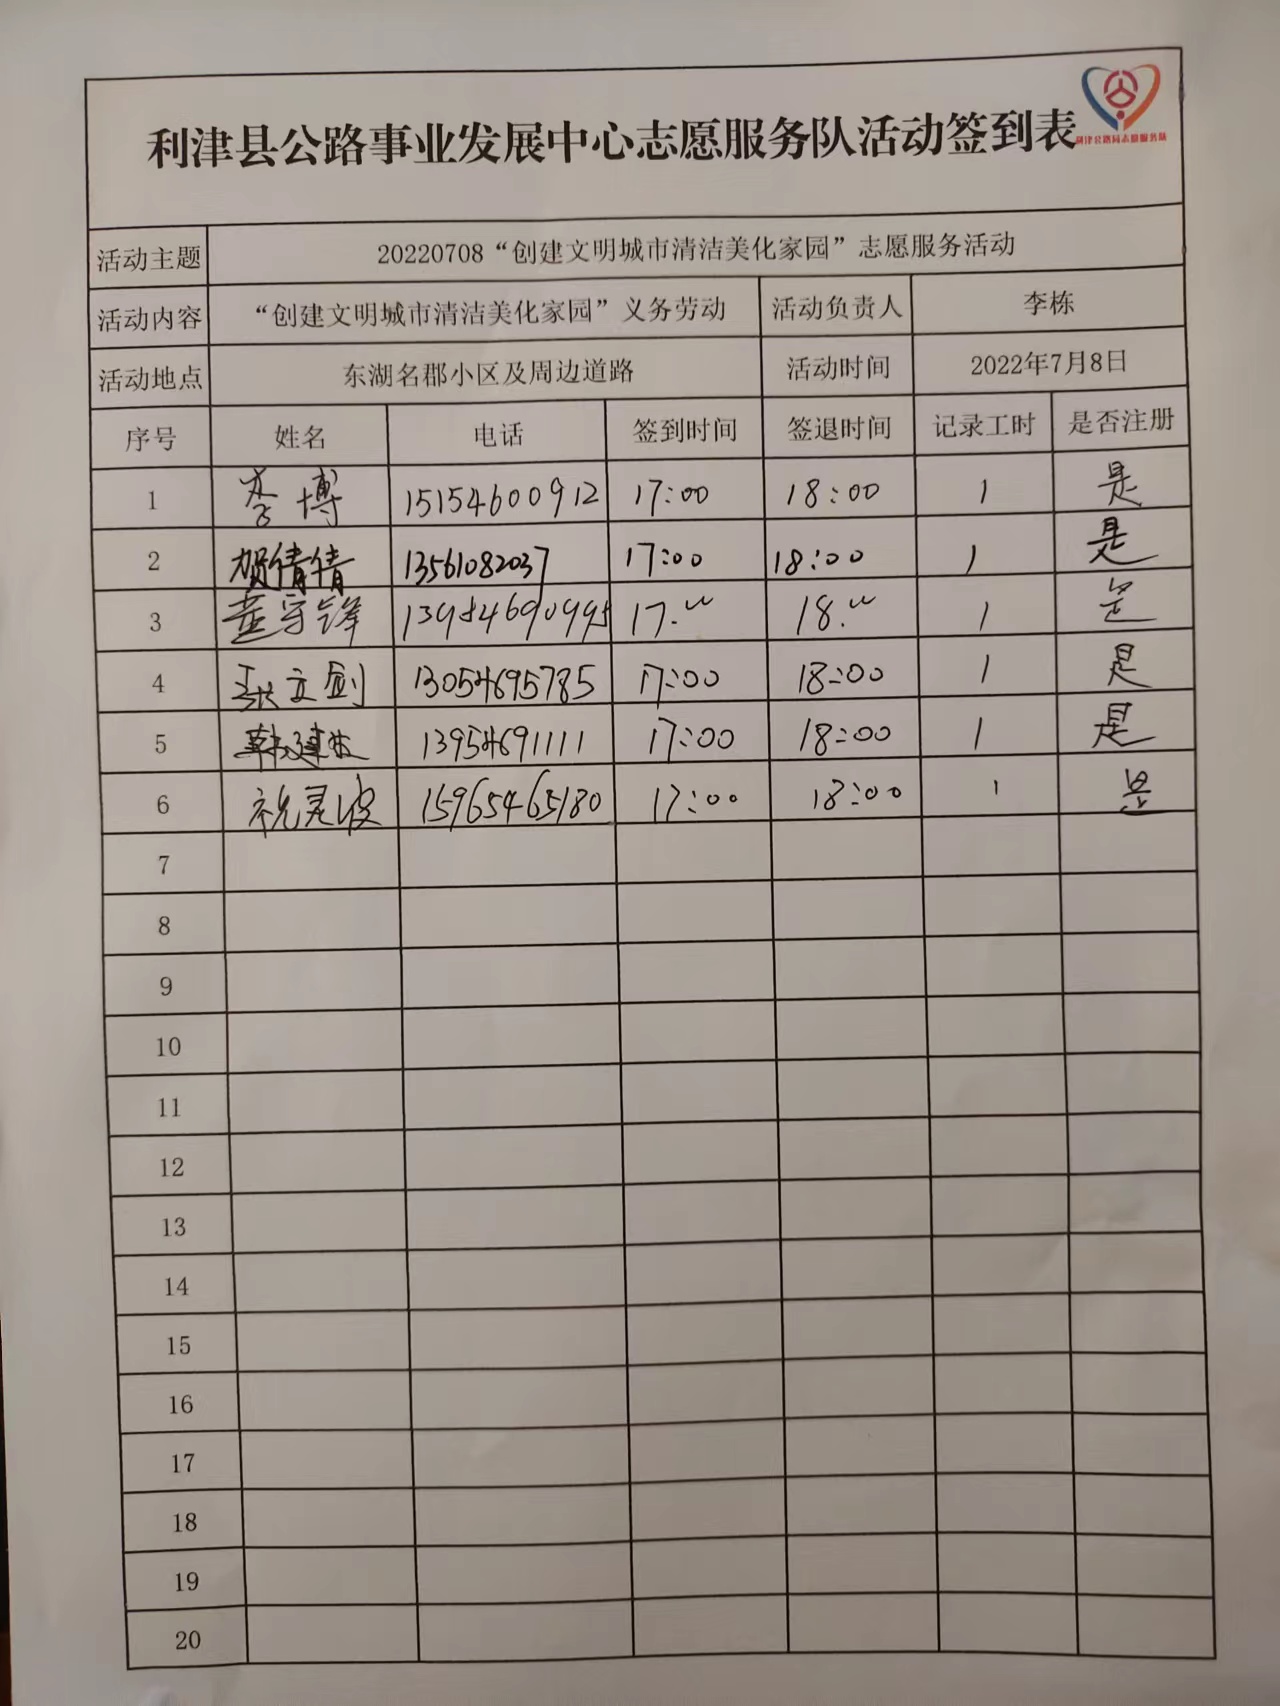 利津县公路事业发展中心志愿服务队活动签到表
利津公路局志愿服务队
活动主题 20220708“创建文明城市清洁美化家园”志愿服务活动
活动内容 “创建文明城市清洁美化家园”义务劳动 活动负责人 李栋
活动地点 东湖名郡小区及周边道路 活动时间 2022年7月8日
序号 姓名 电话 签到时间 签退时间 记录工时 是否注册
1 李博 15154600912 17:00 18:00 1 是
2 贺倩倩 13561082037 17:00 18:00 1 是
3 董守锋 17. 18. 1 是
4 张立剑 13054695785 17:00 18:00 1 是
5 韩建 13954691111 17:00 18:00 1 是
6 祝灵波 15965465180 17:00 18:00 1 是
7
8
9
10
11
12
13
14
15
16
17
18
19
20